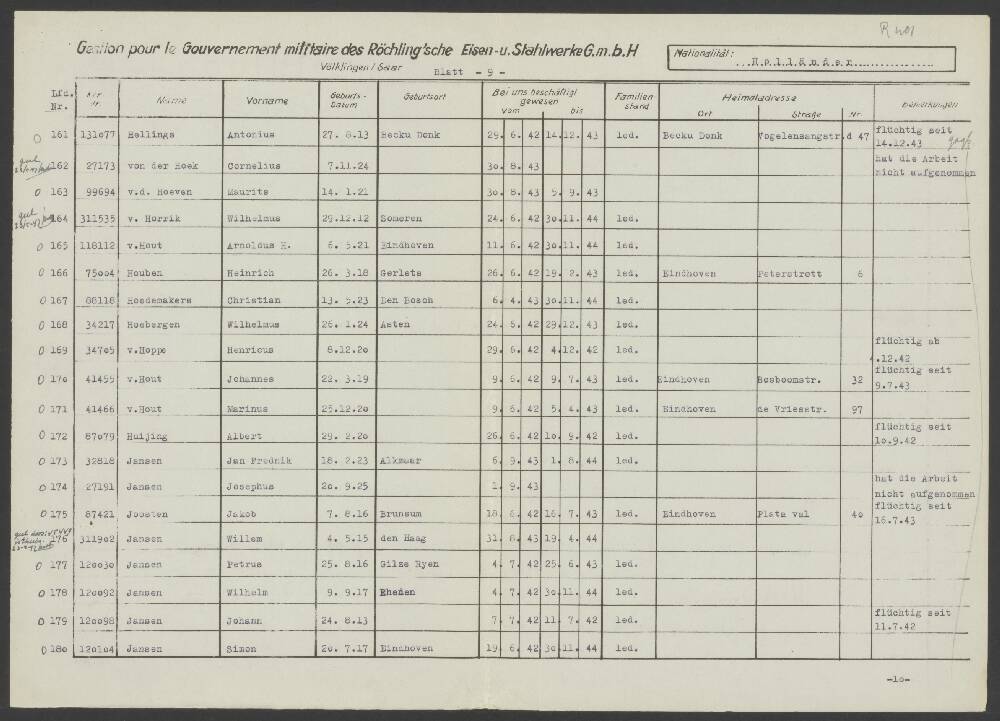 R 401
Gestion pour le Gouvernement militaire des Röchling'sche Eisen-u. Stahlwerke G.m.b.H
Völklingen / Saar
Nationalität: Holländer
Blatt - 9 -
Lfd. Nr. Arb. Nr. Name Vorname Geburts-Datum Geburtsort Bei uns beschäftigt gewesen vom bis Familien stand Heimatadresse Ort Straße Nr Bemerkungen
0 161 131077 Hellings Antonius 27. 8.13 Becku Donk 29. 6. 42 14.12. 43 led. Becku Donk Vogelensangstr.d 47 flüchtig seit 14.12.43
162 27173 von der Hoek Cornelius 7.11.24 30. 8. 43 hat die Arbeit nicht aufgenommen
0 163 99694 v.d. Hoeven Maurits 14. 1.21 30. 8. 43 5. 9. 43
164 311535 v. Horrik Wilhelmus 29.12.12 Someren 24. 6. 42 30.11. 44 led.
0 165 118112 v.Hout Arnoldus H. 6. 5.21 Eindhoven 11. 6. 42 30.11. 44 led.
0 166 75004 Houben Heinrich 26. 3.18 Gerlets 26. 6. 42 19. 2. 43 led. Eindhoven Peterstrott 6
0 167 88118 Hosdemakers Christian 13. 5.23 Den Bosch 6. 4. 43 30.11. 44 led.
0 168 34217 Hoebergen Wilhelmus 26. 1.24 Asten 24. 5. 42 29.12. 43 led.
0 169 34705 v.Hoppe Henricus 8.12.20 29. 6. 42 4.12. 42 led. flüchtig ab 4.12.42
0 170 41455 v.Hout Johannes 22. 3.19 9. 6. 42 9. 7. 43 led. Eindhoven Bosboomstr. 32 flüchtig seit 9.7.43
0 171 41466 v.Hout Marinus 25.12.20 9. 6. 42 5. 4. 43 led. Eindhoven de Vriesstr. 97
0 172 87079 Huijing Albert 29. 2.20 26. 6. 42 10. 9. 42 led. flüchtig seit 10.9.42
0 173 32818 Jansen Jan Frednik 18. 2.23 Alkmaar 6. 9. 43 1. 8. 44 led.
0 174 27191 Jansen Josephus 20. 9.25 1. 9. 43 hat die Arbeit nicht aufgenommen
0 175 87421 Joosten Jakob 7. 8.16 Brunsum 18. 6. 42 16. 7. 43 led. Eindhoven Plata val 40 flüchtig seit 16.7.43
176 311902 Jansen Willem 4. 5.15 den Haag 31. 8. 43 19. 4. 44
0 177 120030 Jansen Petrus 25. 8.16 Gilze Ryen 4. 7. 42 25. 6. 43 led.
0 178 120092 Jansen Wilhelm 9. 9.17 Rheden 4. 7. 42 30.11. 44 led.
0 179 120098 Jansen Johann 24. 8.13 7. 7. 42 11. 7. 42 led. flüchtig seit 11.7.42
0 180 120104 Jansen Simon 20. 7.17 Eindhoven 19. 6. 42 30.11. 44 led.
-10-